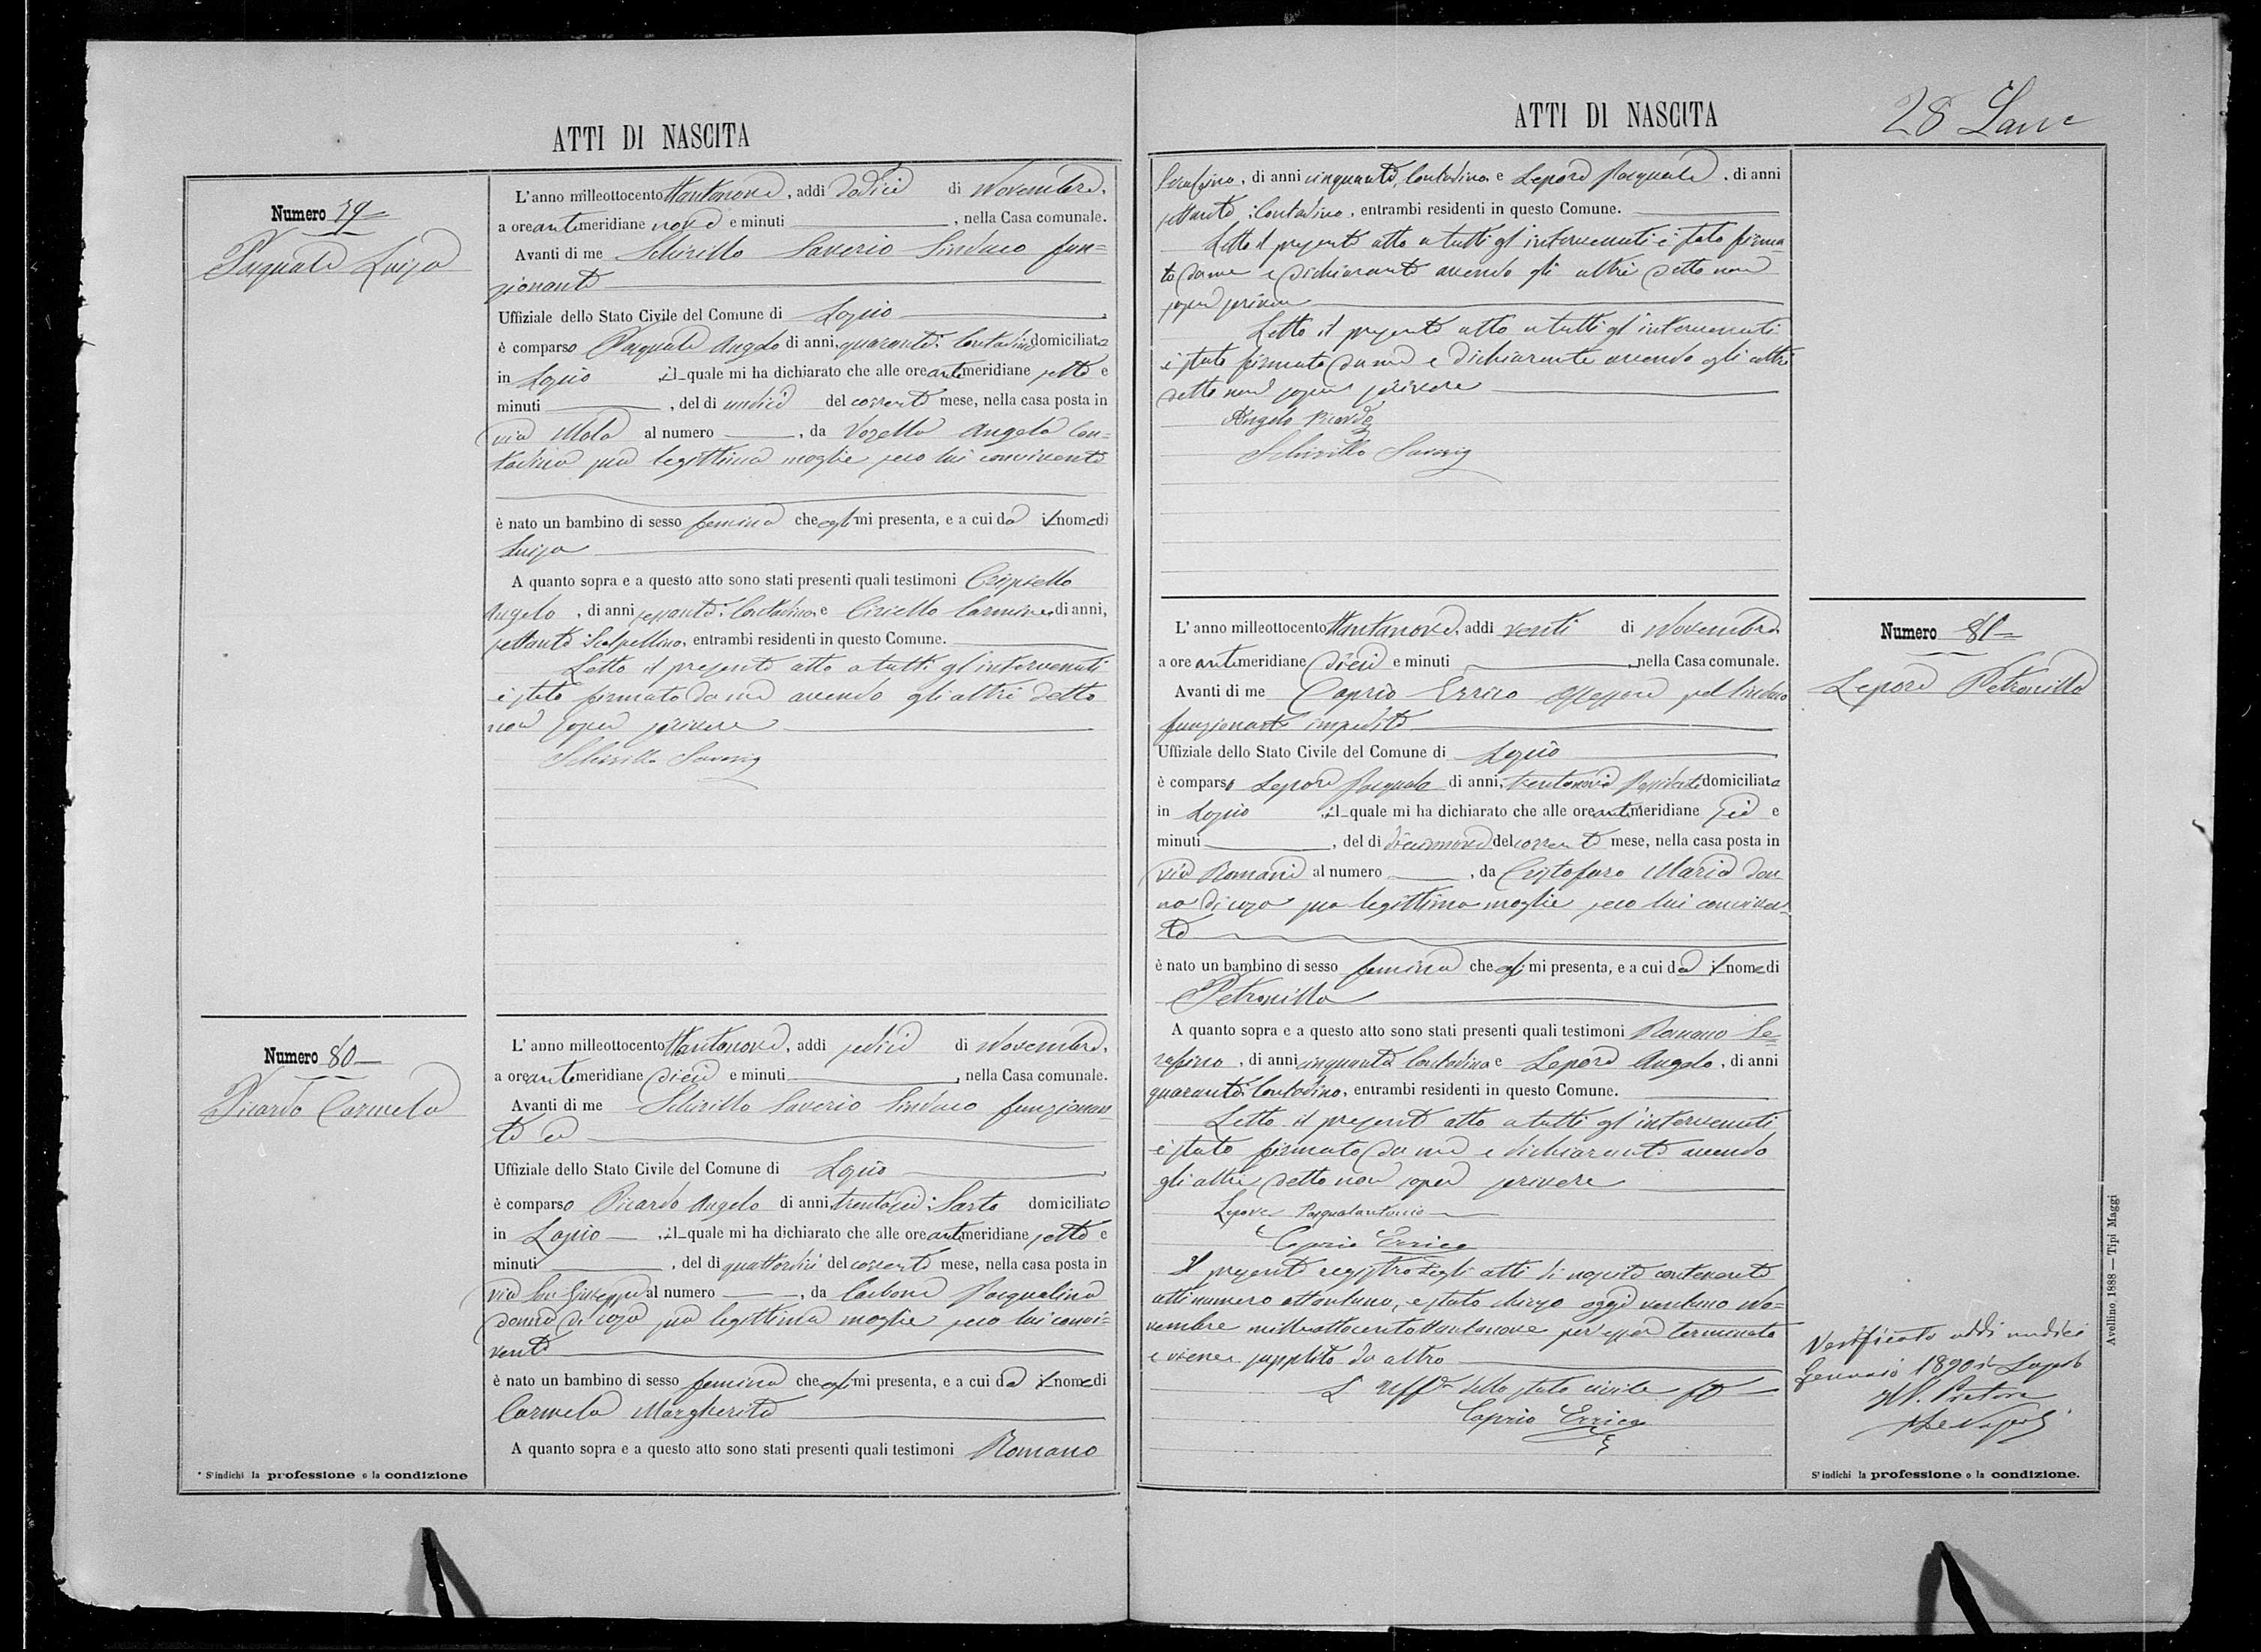 ATTI DI NASCITA
Numero 79
Pasquale Luisa
L'anno milleottocentottantanove, addi dodici di Novembre,
a ore antimeridiane nove e minuti , nella Casa comunale.
Avanti di me Schirillo Saverio Sindaco fun=
zionante
Uffiziale dello Stato Civile del Comune di Lapio
è comparso Pasquale Angelo di anni, quaranta: Contadino domiciliato
in Lapio , il quale mi ha dichiarato che alle ore antimeridiane sette e
minuti , del dì undici del corrente mese, nella casa posta in
via Mola al numero , da Vozella Angela Con=
tadina sua legittima moglie seco lui convivente
è nato un bambino di sesso femina che egli mi presenta, e a cui da il nome di
Luisa
A quanto sopra e a questo atto sono stati presenti quali testimoni
Angelo , di anni sessanta: Contadino e Ciriello Carmine di anni,
settanta Scalpellino, entrambi residenti in questo Comune.
Letto il presente atto a tutti gl'intervenuti
è stato firmato da me avendo gli altri detto
non saper scrivere
Schirillo Saverio
Numero 80
Picardo Carmela
L'anno milleottocentottantanove, addi sedici di Novembre,
a ore antimeridiane dieci e minuti , nella Casa comunale.
Avanti di me Schirillo Saverio Sindaco funzionan
te ed
Uffiziale dello Stato Civile del Comune di Lapio
è comparso Picardo Angelo di anni trentasei: Sarto domiciliato
in Lapio , il quale mi ha dichiarato che alle ore antimeridiane sette e
minuti , del dì quattordici del corrente mese, nella casa posta in
via San Giuseppe al numero , da Carbone Pasqualina
donna di casa sua legittima moglie seco lui convi=
vente
è nato un bambino di sesso femina che egli mi presenta, e a cui da il nome di
Carmela Margherita
A quanto sopra e a questo atto sono stati presenti quali testimoni Romano
* S'indichi la professione o la condizione
ATTI DI NASCITA
28
Serafino, di anni cinquanta, Contadino e Lepore Pasquale, di anni
settanta: Contadino, entrambi residenti in questo Comune.
Letto il presente atto a tutti gl'intervenuti è stato firma
to da me e dichiarante avendo gli altri detto non
saper scrivere
Letto il presente atto a tutti gl'intervenuti
è stato firmato da me e dichiarante avendo gli altri
detto non saper scrivere
Angelo Picardo
Schirillo Saverio
Numero 81
Lepore Petronilla
L'anno milleottocentottantanove, addi venti di Novembre
a ore antimeridiane dieci e minuti , nella Casa comunale.
Avanti di me Caprio Errico Assessore pel Sindaco
funzionante impedito
Uffiziale dello Stato Civile del Comune di Lapio
è comparso Lepore Pasquale di anni, Possidente domiciliato
in Lapio , il quale mi ha dichiarato che alle ore antimeridiane sei e
minuti , del dì diciannove del corrente mese, nella casa posta in
via Romani al numero , da Cristofaro Maria don
na di casa sua legittima moglie seco lui conviven
te
è nato un bambino di sesso femina che egli mi presenta, e a cui da il nome di
Petronilla
A quanto sopra e a questo atto sono stati presenti quali testimoni Romano Se=
rafino, di anni cinquanta Contadino e Lepore Angelo, di anni
quaranta: Contadino, entrambi residenti in questo Comune.
Letto il presente atto a tutti gl'intervenuti
è stato firmato da me e dichiarante avendo
gli altri detto non saper scrivere
Lepore Pasqualantonio
Caprio Errico
Il presente registro degli atti di nascita contenente
atti numero ottantuno, è stato chiuso oggi ventuno No=
vembre milleottocentottantanove per esser terminato
e viene supplito da altro
L'Uff.le dello stato civile
Caprio Errico
Verificato addi undici
Gennaio 1890
Il Pretore
S'indichi la professione o la condizione.
Avellino, 1888 — Tipi Maggi